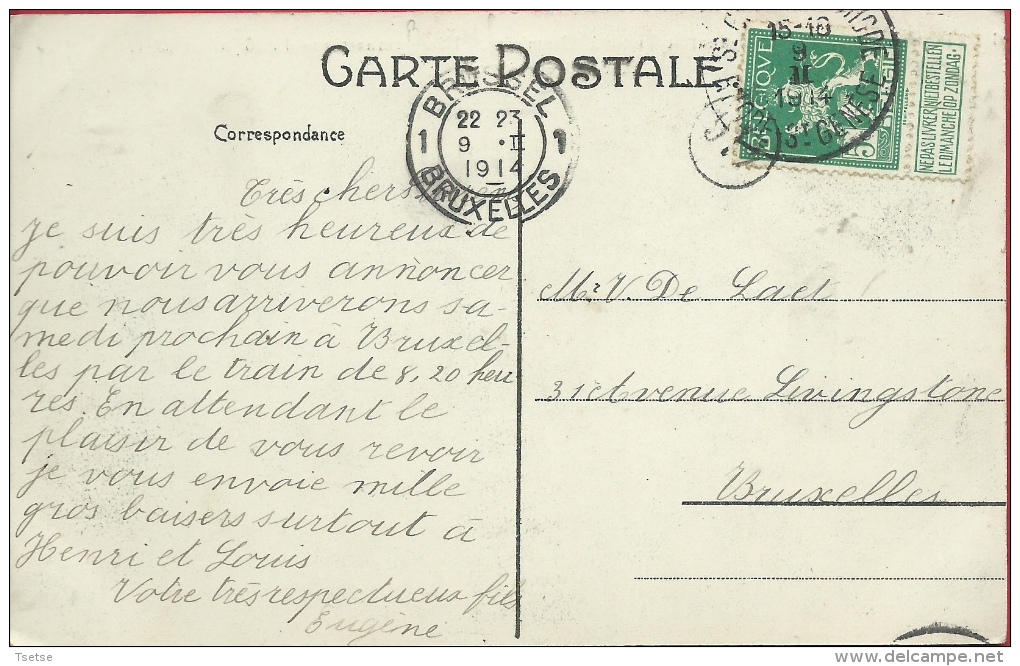 CARTE POSTALE
Correspondance
BRUSSEL
1 1
22 23
9 · II
1914
BRUXELLES
15-18
9
II
1914
St GENESE
BELGIQUE
NE PAS LIVRER LE DIMANCHE
NIET BESTELLEN OP ZONDAG
Très chers
je suis très heureux de
pouvoir vous annoncer
que nous arriverons sa-
medi prochain à Bruxel-
les par le train de 8,20 heu
res. En attendant le
plaisir de vous revoir
je vous envoie mille
gros baisers surtout à
Henri et Louis
Votre très respectueux fils
Eugène
Mr. V. De Laet
31 Avenue Livingstone
Bruxelles
Tsetse
delcampe.net